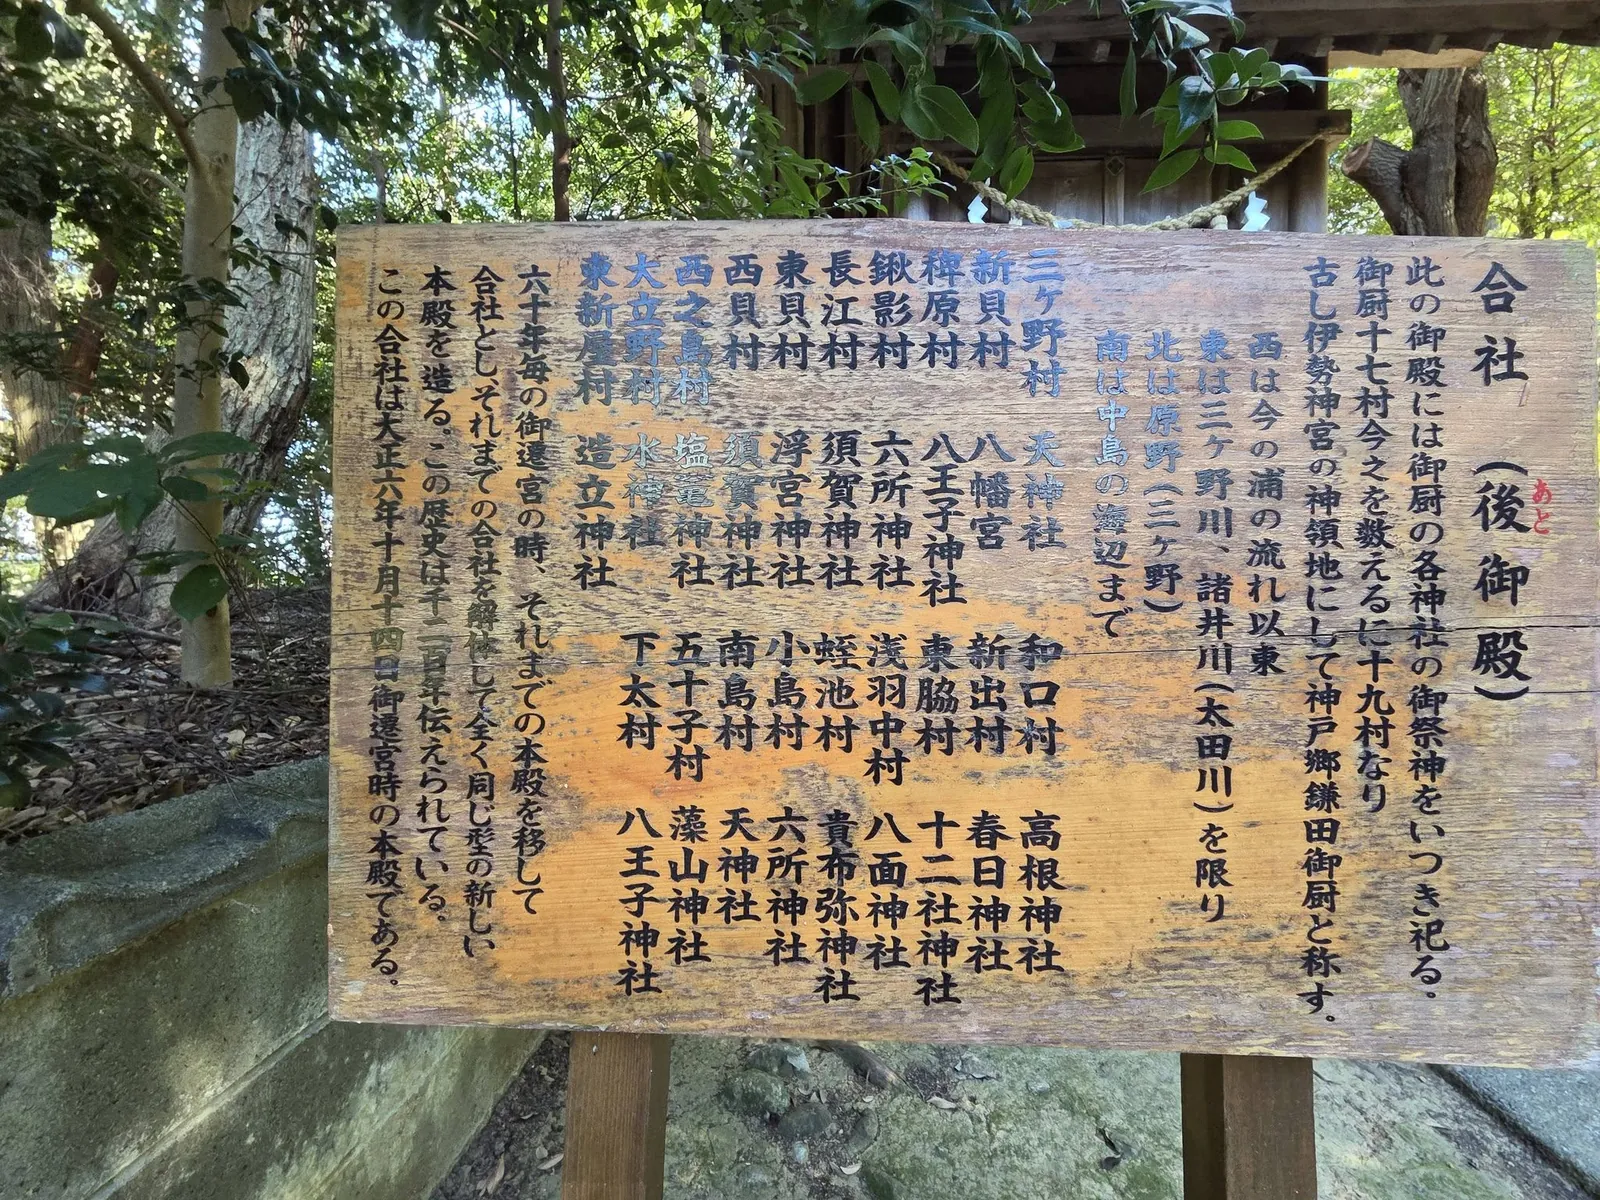 合社（後御殿）
あと
此の御殿には御厨の各神社の御祭神をいつき祀る。
御厨十七村今之を数えるに十九村なり
古し伊勢神宮の神領地にして神戸郷鎌田御厨と称す。
西は今の浦の流れ以東
東は三ヶ野川、諸井川（太田川）を限り
北は原野（三ヶ野）
南は中島の海辺まで
三ヶ野村 天神社 和口村 高根神社
新貝村 八幡宮 新出村 春日神社
稗原村 八王子神社 東脇村 十二社神社
鍬影村 六所神社 浅羽中村 八面神社
長江村 須賀神社 蛭池村 貴布弥神社
東貝村 浮宮神社 小島村 六所神社
西貝村 須賀神社 南島村 天神社
西之島村 塩竈神社 五十子村 藻山神社
大立野村 水神社 下太村 八王子神社
東新屋村 造立神社
六十年毎の御遷宮の時、それまでの本殿を移して
合社とし、それまでの合社を解体して全く同じ型の新しい
本殿を造る。この歴史は千二百年伝えられている。
この合社は大正六年十月十四日御遷宮時の本殿である。